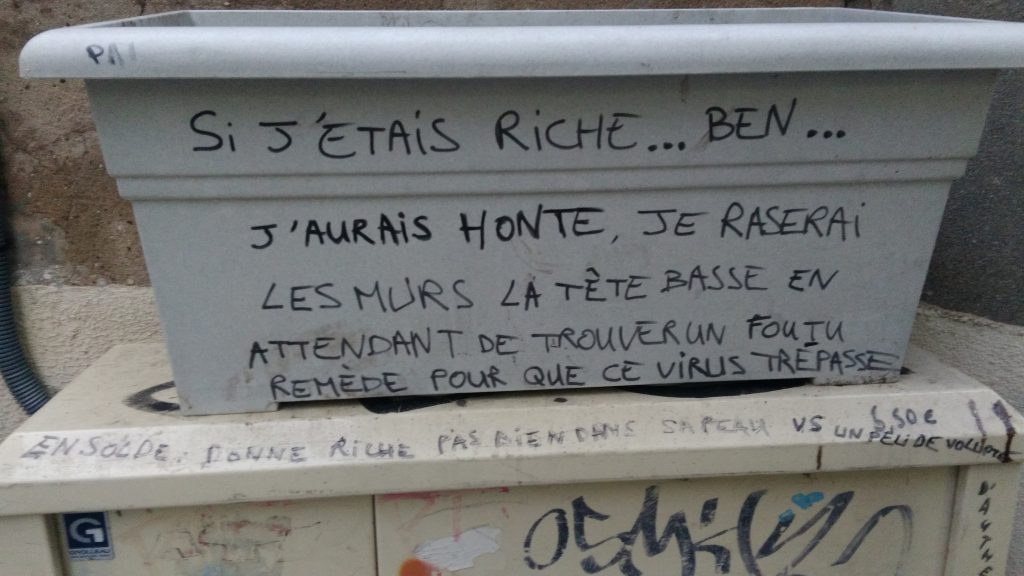 PAI
Si J'ETAIS RiCHE... BEN...
J'AURAIS HONTE, JE RASERAi
LES MURS LA TÊTE BASSE EN
ATTENDANT DE TROUVER UN FOUTU
REMÈDE POUR QUE CE VIRUS TRÉPASSE
EN SOLDE. DONNE RICHE PAS BIEN DANS SA PEAU VS 5,50€
UN PEU DE
G